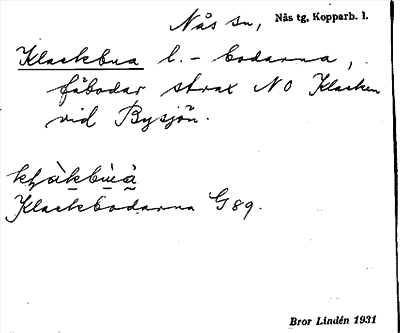 Nås sn, Nås tg, Kopparb. l.
Klackbua l. -bodarna,
fäbodar strax NO Klacken
vid Bysjön.
Klackbodarna G89.
Bror Lindén 1931